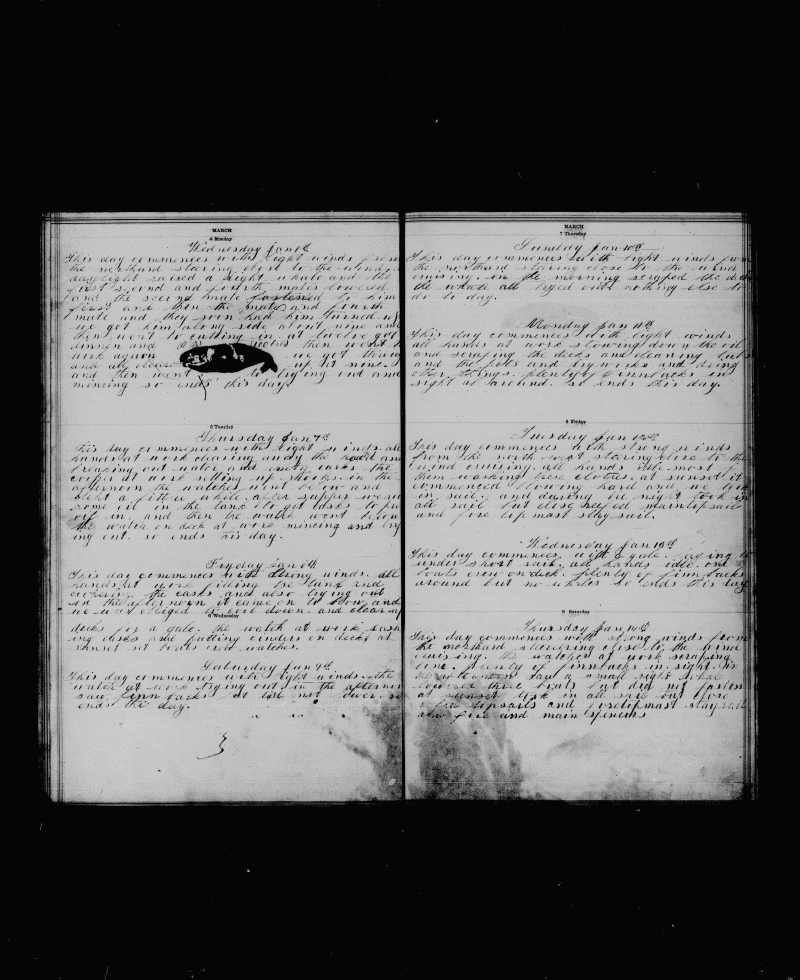 MARCH
4 Monday
Wednesday Jan 6th
This day commences with light winds from
the northard stearing close to the wind at
daylight raised a right whale and the
first second and fourth mates lowered
and the second mate fastened to him
first and then the mate and fourth
mate and they soon had him turned up
we got him along side about nine and
then went to cutting in at twelve got
dinner and then went to
work again we got through
and all cleared up at nine
and then went to trying out and
mincing so ends this day
5 Tuesday
Thursday Jan 7th
This day commences with light winds all
hands at work clearing away the and
breaking out water and empty casks the
cooper at work setting up shooks in the
afternoon the watches went below and
slept a little while after supper were
some oil in the tank to get casks to put
oil in and then the watch went below
the watch on deck at work mincing and try
ing out. so ends this day.
Fryday Jan 8th
This day commences with strong winds. all
hands at work filling the tank and
coopering the casks and also trying out
in the afternoon it came on to blow and
we was obliged to cool down and clear up
6 Wednesday
decks for a gale. the watch at work
ing casks and putting binders on decks at
sunset set boats crew watches.
Saturday Jan 9th
This day commences with light winds. the
watch at work trying out in the afternoon
saw finn backs at but not lower so
ends the day.
MARCH
7 Thursday
Sunday Jan 10th
This day commences with light winds from
the northard stearing close to the wind
cruising. in the morning scraped the deck
the whale all tryed out nothing else to
do to day.
Monday Jan 11th
This day commences with light winds
all hands at work stowing down the oil
and scraping the decks and cleaning
and the pots and tryworks and doing
other things. plenty of finnbacks in
sight all around. so ends this day.
8 Friday
Tuesday Jan 12th
This day commences with strong winds
from the north west stearing close to the
wind cruising. all hands idle most of
them washing there clothes. at sunset it
commenced blowing hard and we took
in sail. and during the night took in
all sail but close reefed maintopsail
and fore top mast stay sail.
Wednesday Jan 13th
This day commences with a gale. laying to
under short sail. all hands idle. one
boats crew on deck. plenty of finn backs
around but no whales so ends this day
9 Saturday
Thursday Jan 14th
This day commences with strong winds from
the northard stearing close to the wind
cruising. the watches at work scraping
bone. plenty of finnbacks in sight. in
the afternoon saw a small right whale
lowered three boats but did not fasten
at sunset took in all sail but close
reefed topsails and foretopmast staysail
and fore and main spencers